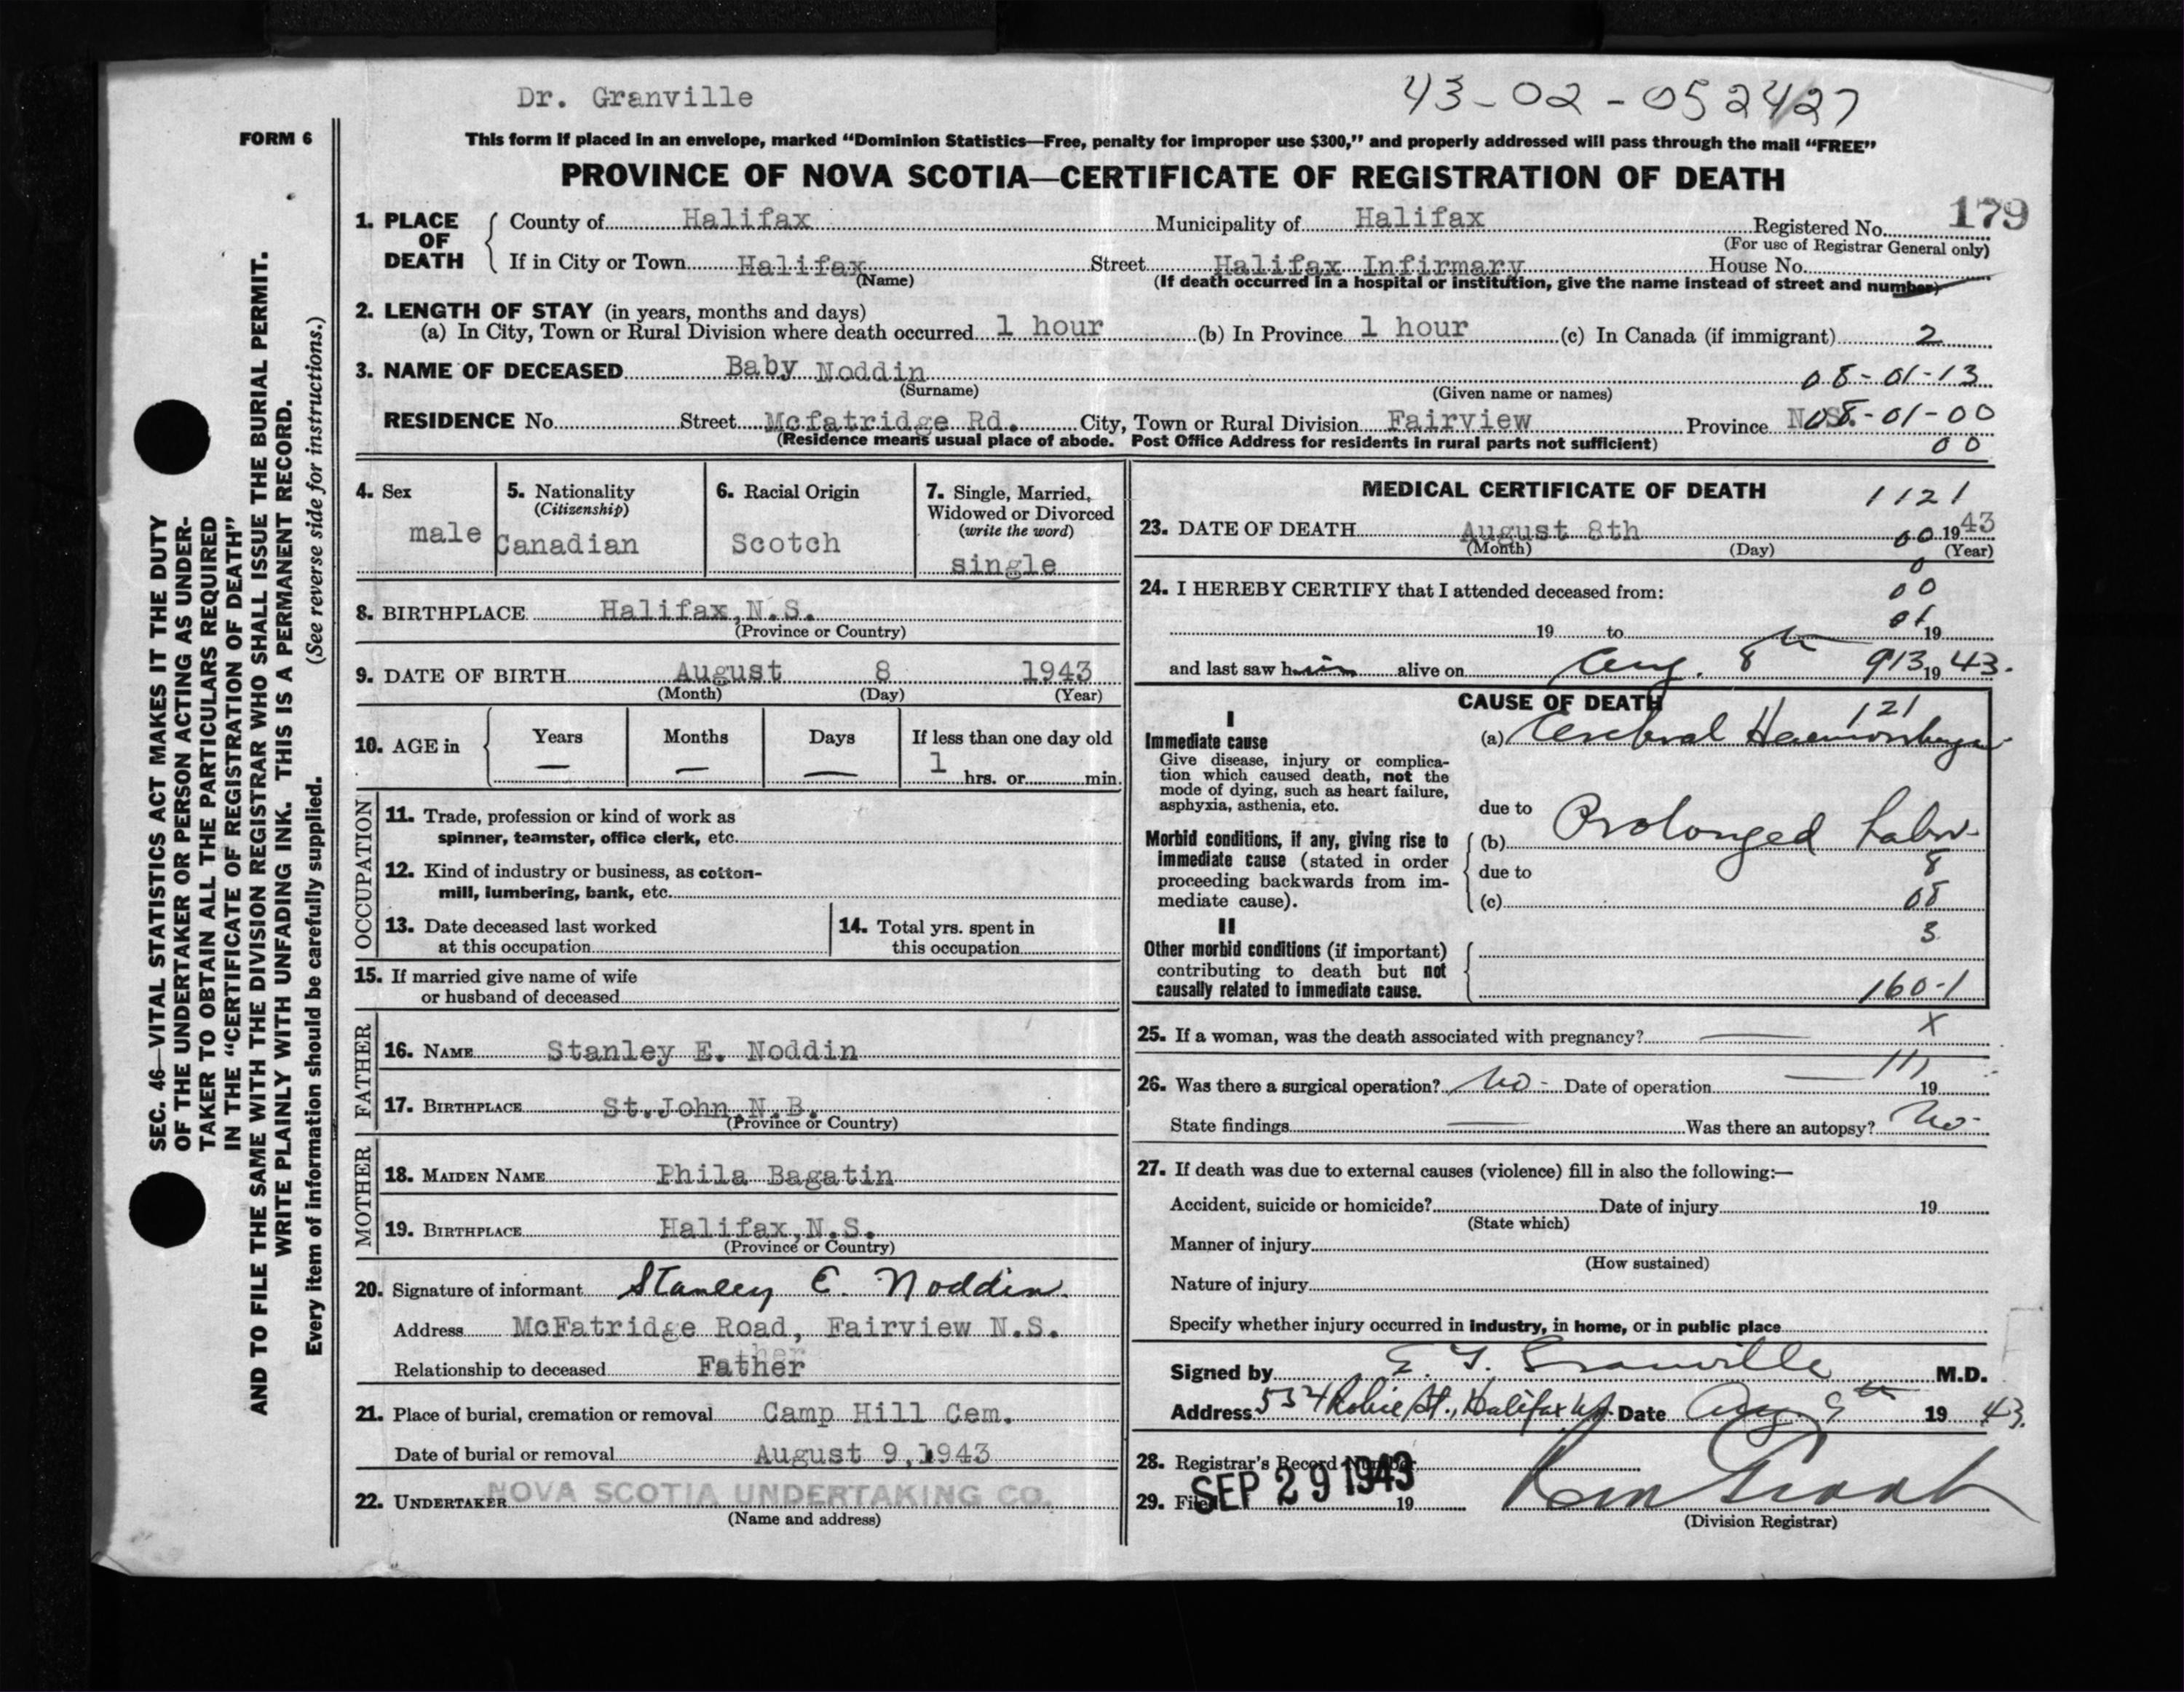 Dr. Granville
43-02-052427
FORM 6
This form if placed in an envelope, marked “Dominion Statistics—Free, penalty for improper use $300,” and properly addressed will pass through the mail “FREE”
PROVINCE OF NOVA SCOTIA—CERTIFICATE OF REGISTRATION OF DEATH
179
1. PLACE OF DEATH
County of Halifax Municipality of Halifax Registered No.
(For use of Registrar General only)
If in City or Town Halifax Street Halifax Infirmary House No.
(Name) (If death occurred in a hospital or institution, give the name instead of street and number)
2. LENGTH OF STAY (in years, months and days)
(a) In City, Town or Rural Division where death occurred 1 hour (b) In Province 1 hour (c) In Canada (if immigrant) 2
3. NAME OF DECEASED Baby Noddin 08-01-13
(Surname) (Given name or names)
RESIDENCE No. Street Mcfatridge Rd. City, Town or Rural Division Fairview Province N.S. 08-01-00
(Residence means usual place of abode. Post Office Address for residents in rural parts not sufficient) 00
4. Sex
male
5. Nationality
(Citizenship)
Canadian
6. Racial Origin
Scotch
7. Single, Married,
Widowed or Divorced
(write the word)
single
8. BIRTHPLACE Halifax,N.S.
(Province or Country)
9. DATE OF BIRTH August 8 1943
(Month) (Day) (Year)
10. AGE in Years Months Days If less than one day old
— — — 1 hrs. or min.
OCCUPATION
11. Trade, profession or kind of work as
spinner, teamster, office clerk, etc.
12. Kind of industry or business, as cotton-
mill, lumbering, bank, etc.
13. Date deceased last worked
at this occupation
14. Total yrs. spent in
this occupation
15. If married give name of wife
or husband of deceased
FATHER
16. NAME Stanley E. Noddin
17. BIRTHPLACE St.John,N.B.
(Province or Country)
MOTHER
18. MAIDEN NAME Phila Bagatin
19. BIRTHPLACE Halifax,N.S.
(Province or Country)
20. Signature of informant Stanley E. Noddin
Address McFatridge Road, Fairview N.S.
Relationship to deceased Father
21. Place of burial, cremation or removal Camp Hill Cem.
Date of burial or removal August 9,1943
22. UNDERTAKER NOVA SCOTIA UNDERTAKING CO.
(Name and address)
MEDICAL CERTIFICATE OF DEATH 1121
23. DATE OF DEATH August 8th 00 1943
(Month) (Day) (Year)
0
24. I HEREBY CERTIFY that I attended deceased from: 00
19 to 01 19
and last saw him alive on Aug. 8th 913 19 43.
CAUSE OF DEATH
121
I
Immediate cause
Give disease, injury or complica-
tion which caused death, not the
mode of dying, such as heart failure,
asphyxia, asthenia, etc.
(a) Cerebral Haemorrhage
due to
Morbid conditions, if any, giving rise to
immediate cause (stated in order
proceeding backwards from im-
mediate cause).
(b) Prolonged Labor
due to 8
(c) 08
II 3
Other morbid conditions (if important)
contributing to death but not
causally related to immediate cause.
160-1
25. If a woman, was the death associated with pregnancy? — X
111
26. Was there a surgical operation? No - Date of operation — 19
State findings — Was there an autopsy? No-
27. If death was due to external causes (violence) fill in also the following:—
Accident, suicide or homicide? Date of injury 19
(State which)
Manner of injury
(How sustained)
Nature of injury
Specify whether injury occurred in industry, in home, or in public place
Signed by Granville M.D.
Address 554 Robie St., Halifax N.S. Date Aug. 9th 19 43.
28. Registrar's Record Number
29. Filed SEP 29 1943 19
(Division Registrar)
SEC. 46—VITAL STATISTICS ACT MAKES IT THE DUTY
OF THE UNDERTAKER OR PERSON ACTING AS UNDER-
TAKER TO OBTAIN ALL THE PARTICULARS REQUIRED
IN THE “CERTIFICATE OF REGISTRATION OF DEATH”
AND TO FILE THE SAME WITH THE DIVISION REGISTRAR WHO SHALL ISSUE THE BURIAL PERMIT.
WRITE PLAINLY WITH UNFADING INK. THIS IS A PERMANENT RECORD.
Every item of information should be carefully supplied. (See reverse side for instructions.)